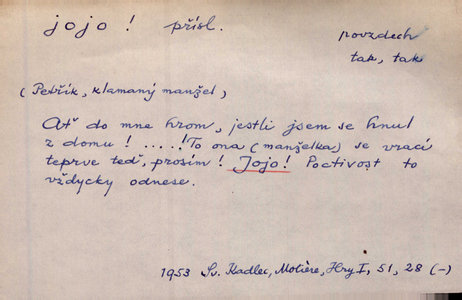 jojo ! přísl.
povzdech
tak, tak
(Petřík, klamaný manžel,)
Ať do mne hrom, jestli jsem se hnul
z domu ! .....! To ona (manželka) se vrací
teprve teď, prosím ! Jojo ! Poctivost to
vždycky odnese.
1953 Sv. Kadlec, Molière, Hry I, 51, 28 (-)